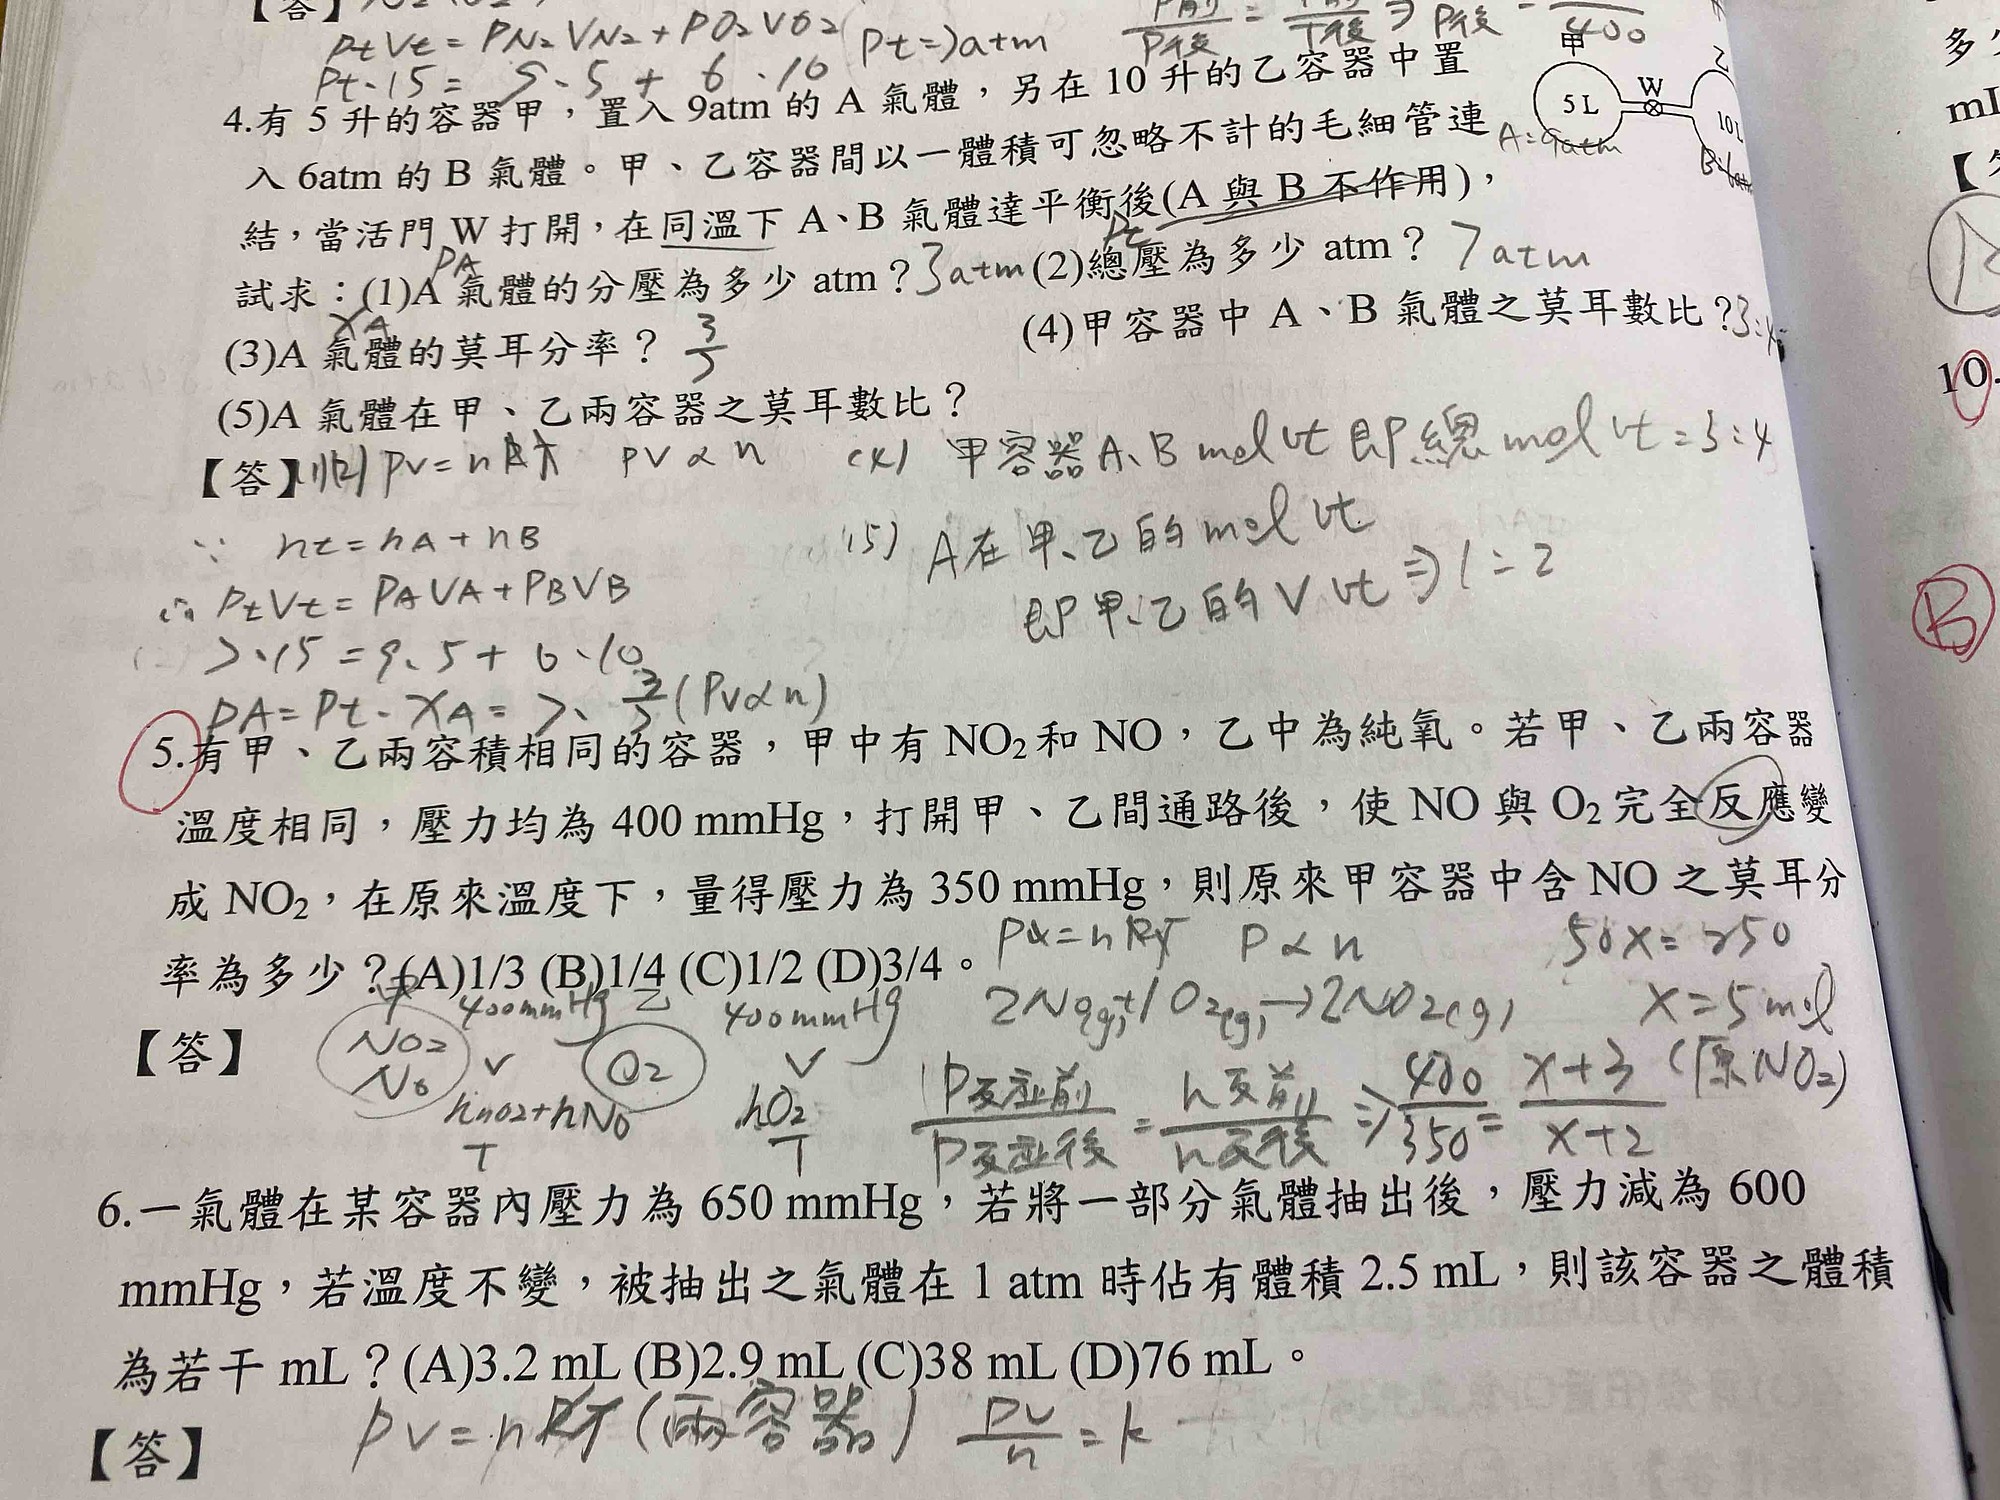 【答】
PtVt = PN2VN2 + PO2VO2 (Pt=7atm
Pt·15 = 9·5 + 6·10
P前/P後 = T前/T後 ⇒ P後 = /400
4.有 5 升的容器甲，置入 9atm 的 A 氣體，另在 10 升的乙容器中置
入 6atm 的 B 氣體。甲、乙容器間以一體積可忽略不計的毛細管連
結，當活門 W 打開，在同溫下 A、B 氣體達平衡後(A 與 B 不作用)，
甲
乙
5 L
W
10L
A:9atm
PA
Pt
試求：(1)A 氣體的分壓為多少 atm？3atm (2)總壓為多少 atm？ 7atm
XA
(3)A 氣體的莫耳分率？ 3/7
(4)甲容器中 A、B 氣體之莫耳數比？3:4
(5)A 氣體在甲、乙兩容器之莫耳數比？
【答】(1)(2) PV=nRT PV∝n
∵ nt=nA+nB
∴ PtVt=PAVA+PBVB
7·15=9·5+6·10
PA=Pt·XA=7·3/7 (PV∝n)
(4) 甲容器A、B mol比即總mol比=3:4
(5) A在甲、乙的mol比
即甲、乙的V比⇒1:2
5.有甲、乙兩容積相同的容器，甲中有 NO2 和 NO，乙中為純氧。若甲、乙兩容器
溫度相同，壓力均為 400 mmHg，打開甲、乙間通路後，使 NO 與 O2 完全反應變
成 NO2，在原來溫度下，量得壓力為 350 mmHg，則原來甲容器中含 NO 之莫耳分
率為多少？(A)1/3 (B)1/4 (C)1/2 (D)3/4。
PV=nRT P∝n
50x=250
x=5mol
(原NO2)
2NO(g)+1O2(g)→2NO2(g)
P反應前/P反應後 = n反前/n反後 ⇒ 400/350 = x+3/x+2
【答】
甲
NO2
NO
400mmHg
V
nNO2+nNO
T
乙
O2
400mmHg
V
nO2
T
6.一氣體在某容器內壓力為 650 mmHg，若將一部分氣體抽出後，壓力減為 600
mmHg，若溫度不變，被抽出之氣體在 1 atm 時佔有體積 2.5 mL，則該容器之體積
為若干 mL？(A)3.2 mL (B)2.9 mL (C)38 mL (D)76 mL。
【答】
PV=nRT (兩容器) PV/n=k
多
mL
10.
B